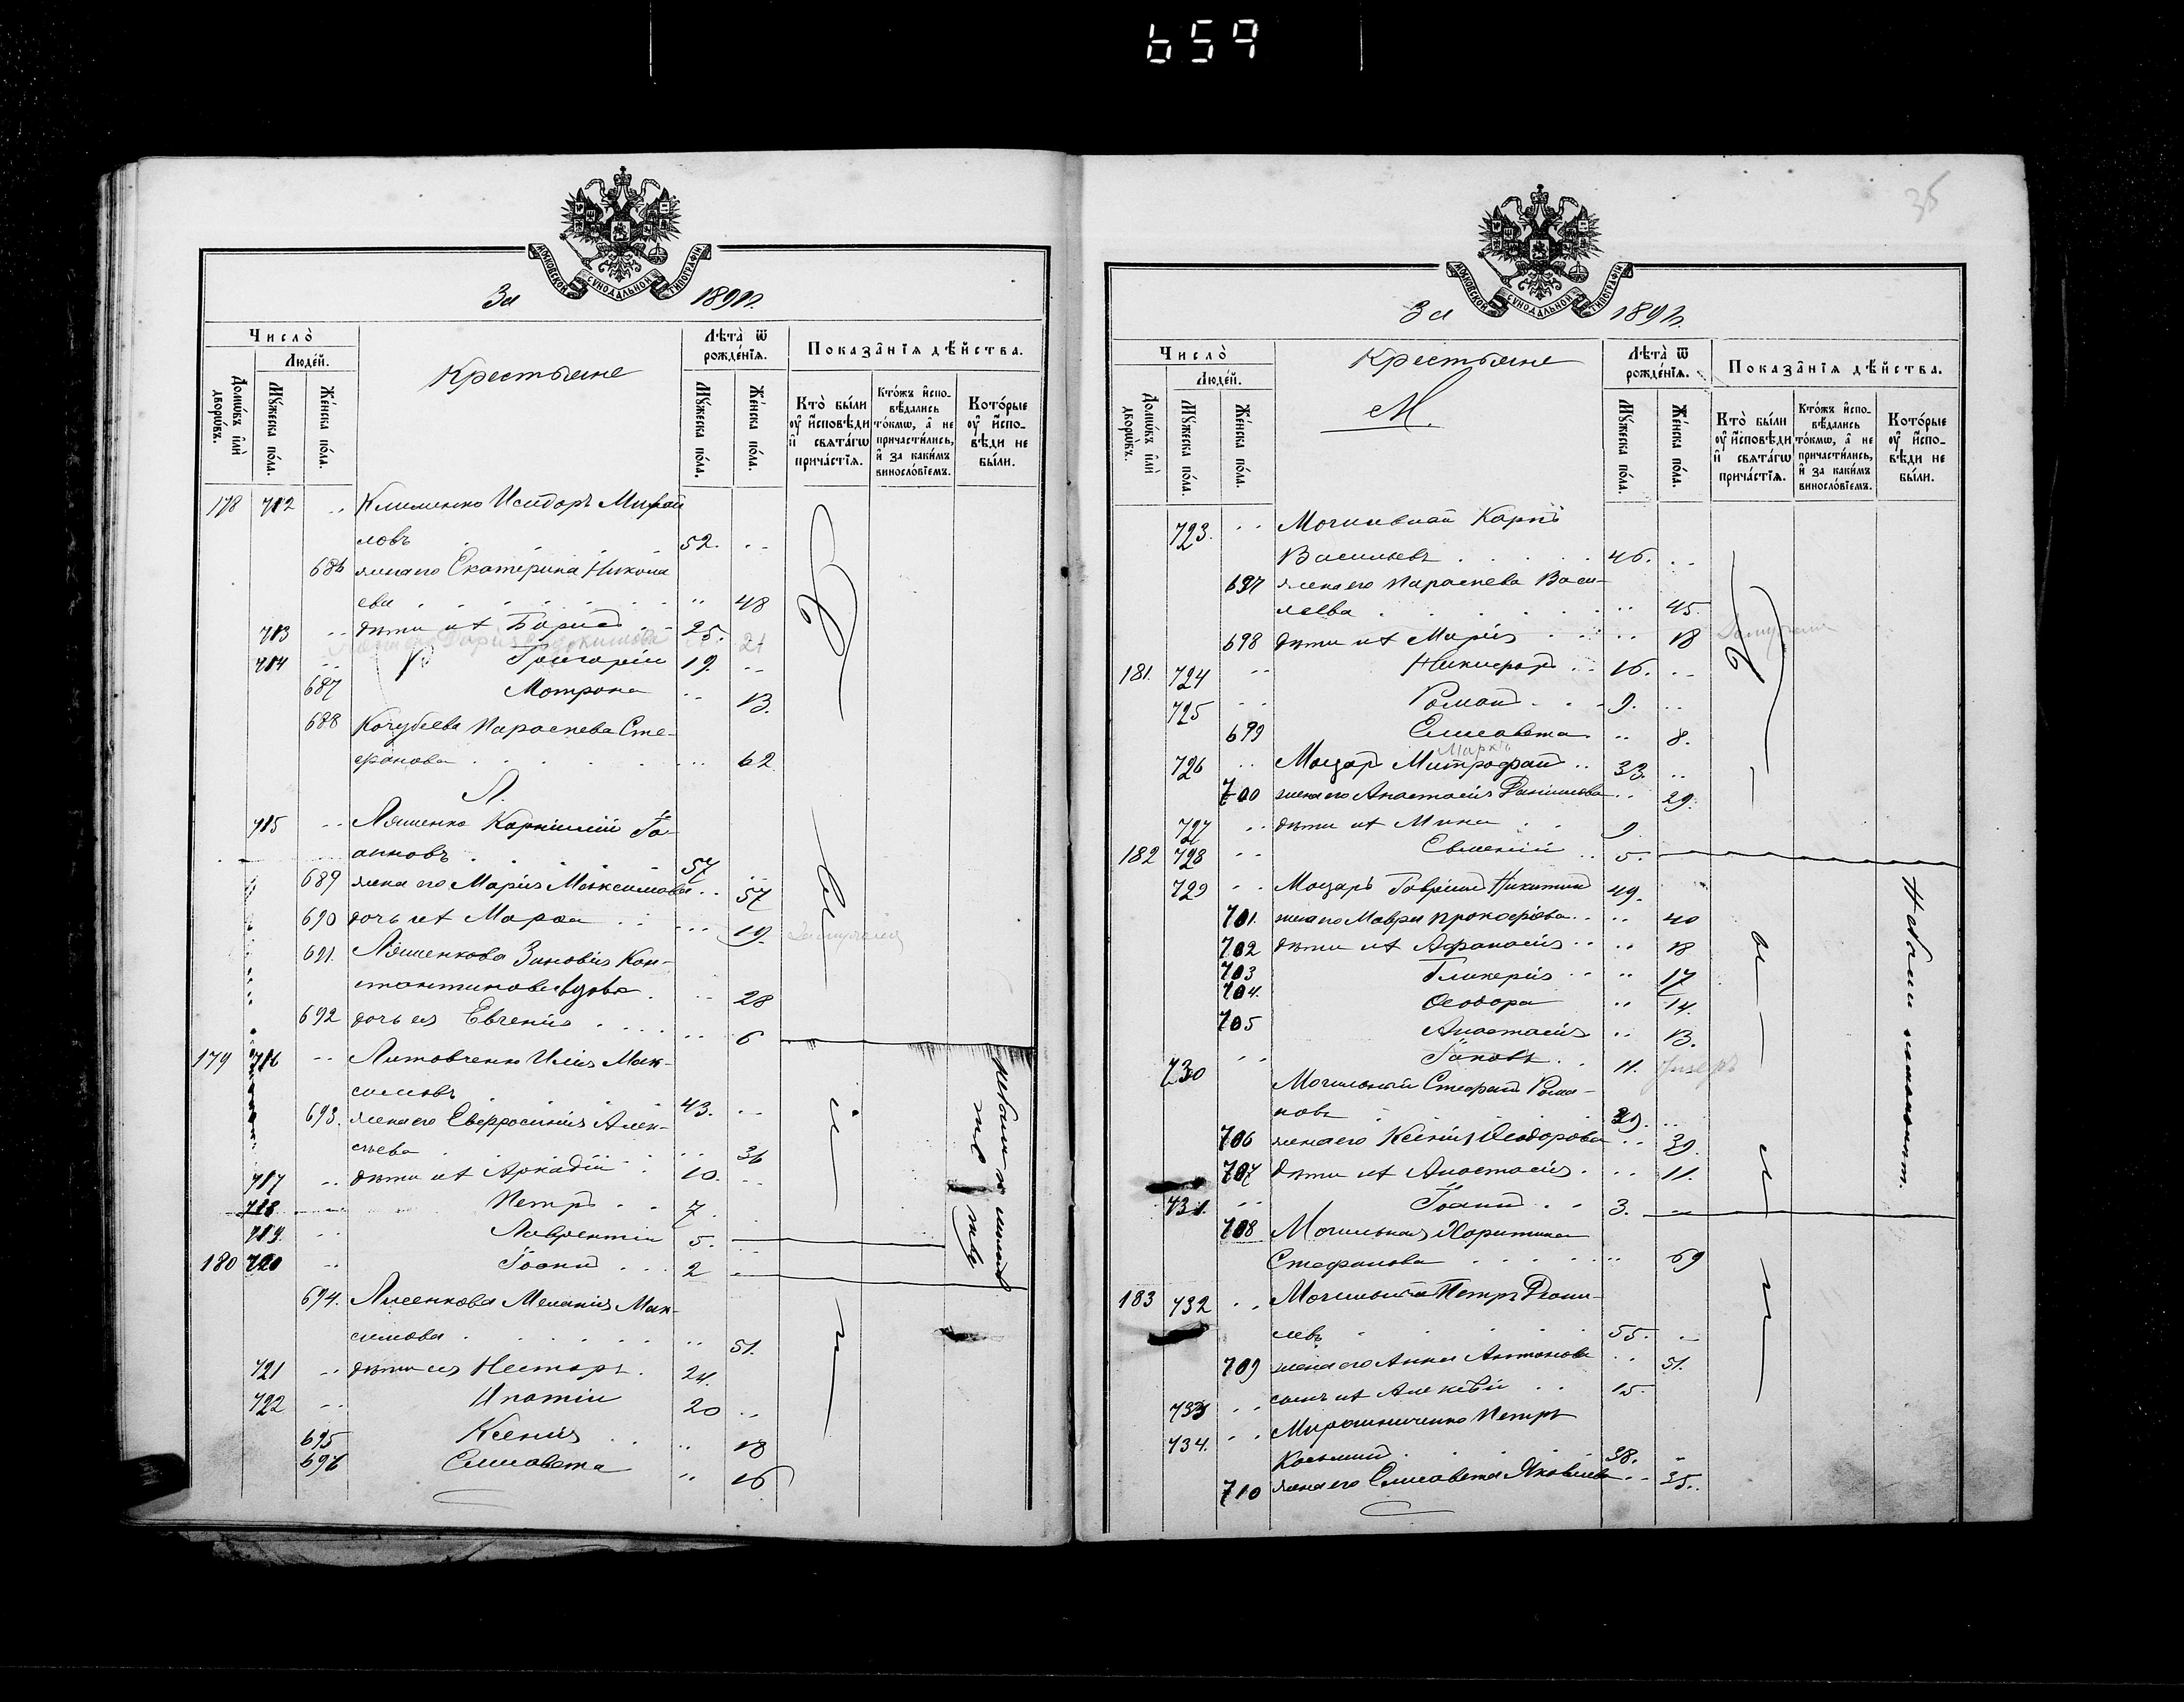 659
МОСКОВСКОЙ СѴНОДАЛЬНОЙ ТИПОГРАФІИ
За 1891 г.
Число̀
Людéй.
Домѡ́въ и҆лѝ дворѡ́въ.
Мꙋ́жеска по́ла.
Же́нска по́ла.
Крестьяне
Лѣ́та ѿ рожде́нїѧ.
Мꙋ́жеска по́ла.
Же́нска по́ла.
Показа̑нїѧ дѣ́йства.
Кто̀ бы́ли ᲂу҆ и҆сповѣ́ди и҆ свѧта́гѡ прича́стїѧ.
Кто́жъ и҆спо- вѣ́дались то́кмѡ, а҆ не причасти́лись, и҆ за каки́мъ винослóвїемъ.
Кото́рые ᲂу҆ и҆спо- вѣ́ди не бы́ли.
178 712 .. Клименко Исидоръ Михай
ловъ 52. ..
686 жена его Екатерина Никола
ева .. 48
713 .. дѣти ихъ Борисъ 25.
Дарія Евдокимова 21
714 .. Григорій 19. ..
687 Мотрона .. 13.
688 Кочубеева Параскева Сте-
фанова .. 62
Л.
715 .. Ляшенко Корнилій Іо-
анновъ 57 ..
689 жена его Марія Максимова .. 57
690 дочь ихъ Марфа ... 19.
691. Ляшенкова Зиновія Кон-
стантинова вдова .. 28
692 дочь ея Евгенія .. 6
179 716 .. Литовченко Илія Мак-
симовъ 43. ..
693. жена его Евфросинія Алек-
сѣева .. 36
717 .. дѣти ихъ Аркадій 10. ..
718 Петръ 7 ..
719. .. Лаврентій 5. ..
180 720 .. Іоаннъ 2
694. Лисенкова Меланія Мак-
симова .. 51.
721 .. дѣти ея Несторъ 24.
722 .. Ипатій 20 ..
695 Ксенія .. 18
696 Елисавета .. 16
35
МОСКОВСКОЙ СѴНОДАЛЬНОЙ ТИПОГРАФІИ
За 1891 г.
Число̀
Людéй.
Домѡ́въ и҆лѝ дворѡ́въ.
Мꙋ́жеска по́ла.
Же́нска по́ла.
Крестьяне
М.
Лѣ́та ѿ рожде́нїѧ.
Мꙋ́жеска по́ла.
Же́нска по́ла.
Показа̑нїѧ дѣ́йства.
Кто̀ бы́ли ᲂу҆ и҆сповѣ́ди и҆ свѧта́гѡ прича́стїѧ.
Кто́жъ и҆спо- вѣ́дались то́кмѡ, а҆ не причасти́лись, и҆ за каки́мъ винослóвїемъ.
Кото́рые ᲂу҆ и҆спо- вѣ́ди не бы́ли.
723. .. Могильный Карпъ
Васильевъ 46. ..
697 жена его Параскева Васи-
льева .. 45.
698 дѣти ихъ Марія .. 18
181. 724 .. Никифоръ 16. ..
725 .. Романъ 9. ..
699 Елисавета .. 8.
Маркъ
726 .. Моцарь Митрофанъ 33. ..
700 жена его Анастасія Даниилова .. 29.
727 .. дѣти ихъ Мина 9.
182 728 .. Евменій 5.
729 .. Моцарь Гавріилъ Никитинъ 49.
701. жена его Мавра Прокофіева .. 40
702 дѣти ихъ Афанасія .. 18
703 Гликерія .. 17
704. Ѳеодора .. 14.
705 Анастасія .. 13.
730 .. Іаковъ 11.
Могильный Стефанъ Рома-
новъ 39. ..
706 жена его Ксенія Ѳеодорова .. 39.
707 дѣти ихъ Анастасія .. 11.
731. .. Іоаннъ 3.
708 Могильная Харитина
Стефанова .. 69
183 732 .. Могильный Петръ Діони-
сіевъ 55. ..
709 жена его Анна Антонова .. 51.
733 .. сынъ ихъ Алексѣй 15.
734. .. Мирошниченко Петръ
Косьминъ 38. ..
710 жена его Елисавета Яковлева .. 35.